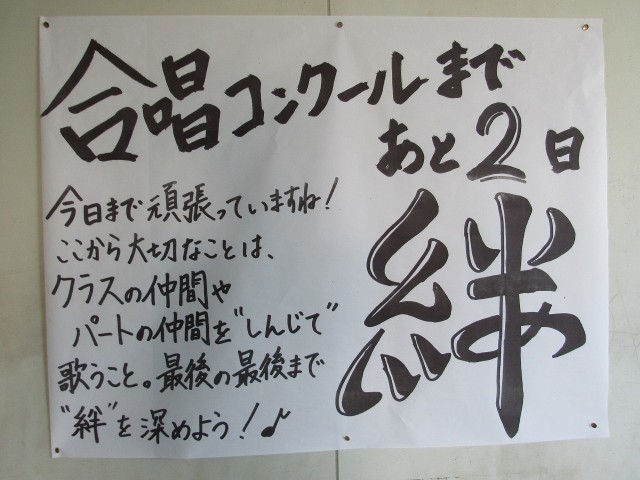 合唱コンクールまで
あと2日
絆
今日まで頑張っていますね!
ここから大切なことは、
クラスの仲間や
パートの仲間を"しんじて"
歌うこと。最後の最後まで
"絆"を深めよう!♪